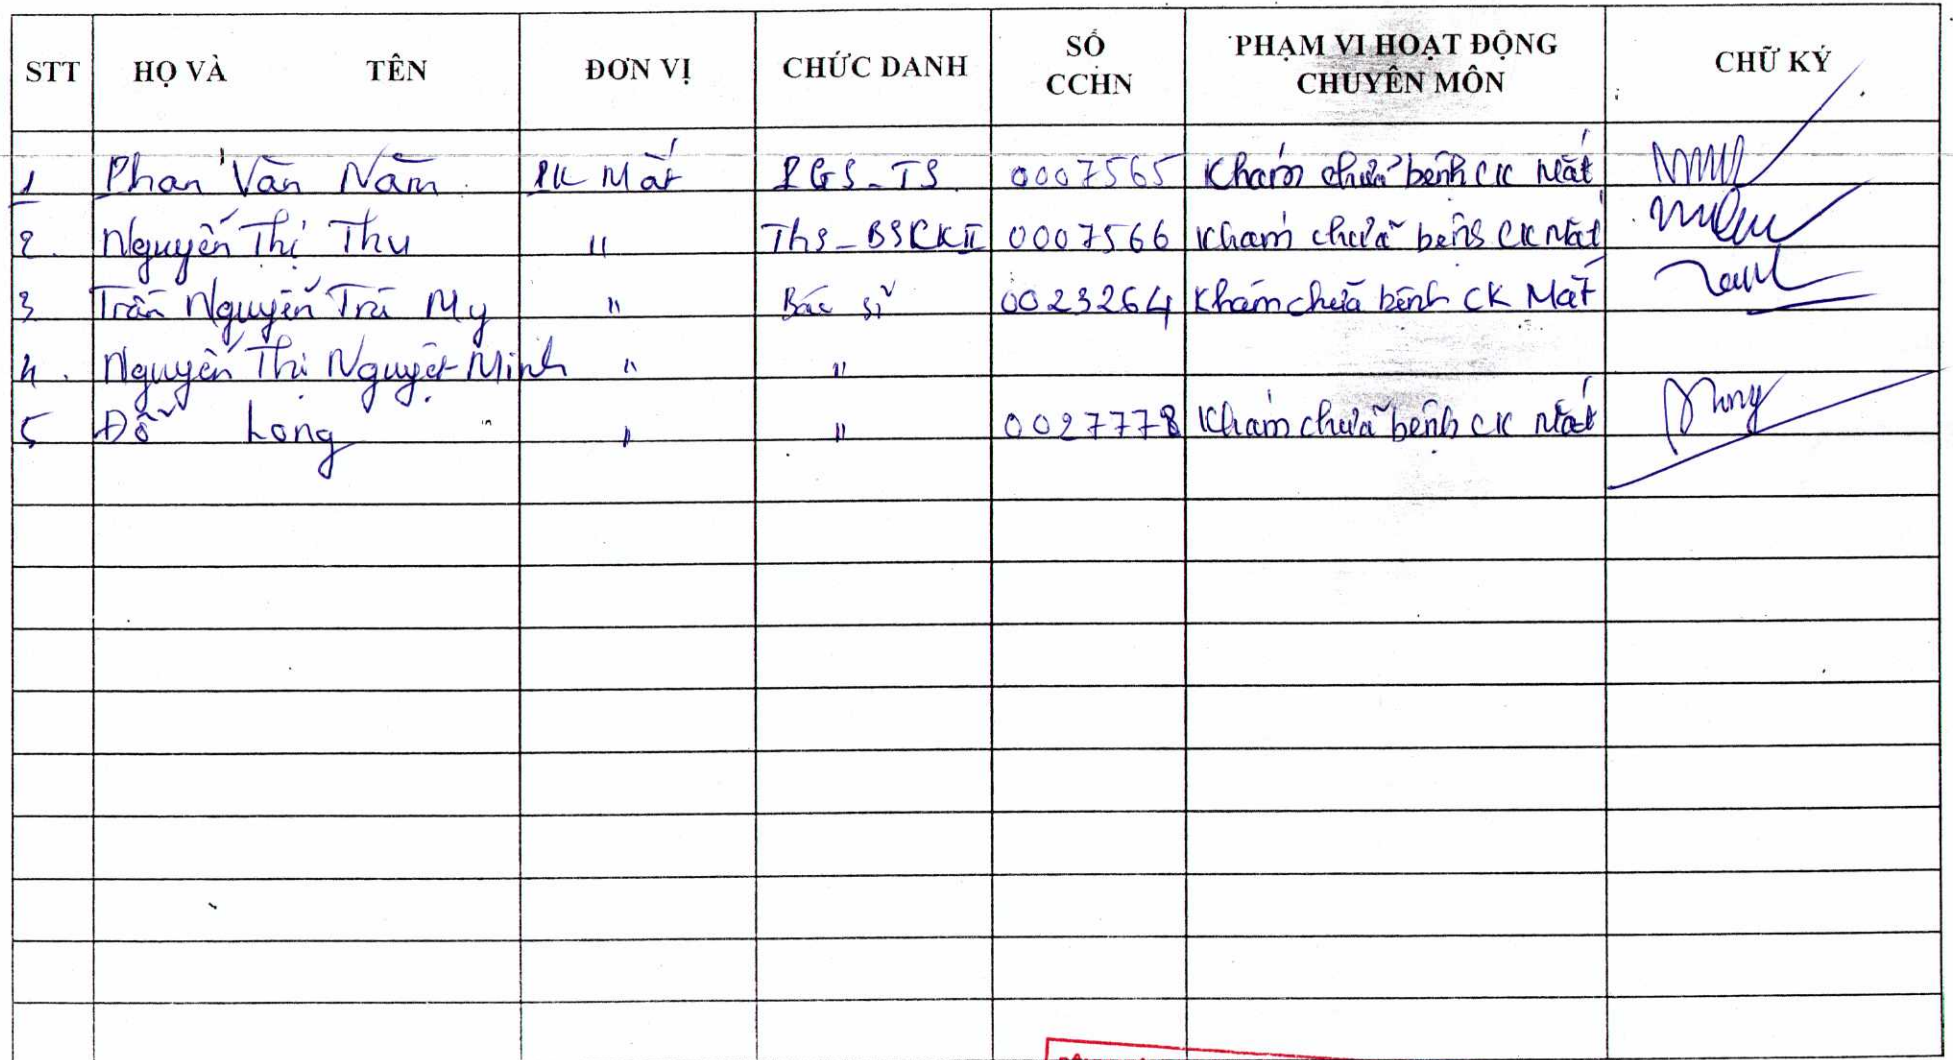 STT HỌ VÀ TÊN ĐƠN VỊ CHỨC DANH SỐ CCHN PHẠM VI HOẠT ĐỘNG CHUYÊN MÔN CHỮ KÝ
1 Phan Văn Năm PK Mắt PGS-TS 0007565 Khám chữa bệnh CK Mắt
2. Nguyễn Thị Thu " Ths-BSCKII 0007566 Khám chữa bệnh CK Mắt
3 Trần Nguyễn Trà My " Bác sĩ 0023264 Khám chữa bệnh CK Mắt
4. Nguyễn Thị Nguyệt Minh " "
5 Đỗ Long " " 0027778 Khám chữa bệnh CK Mắt